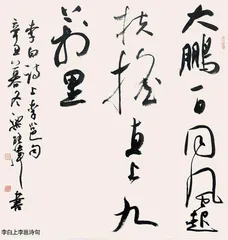 大鹏一日同风起
扶摇直上九
万里
李白诗上李邕句
辛丑暮冬 书
李白上李邕诗句